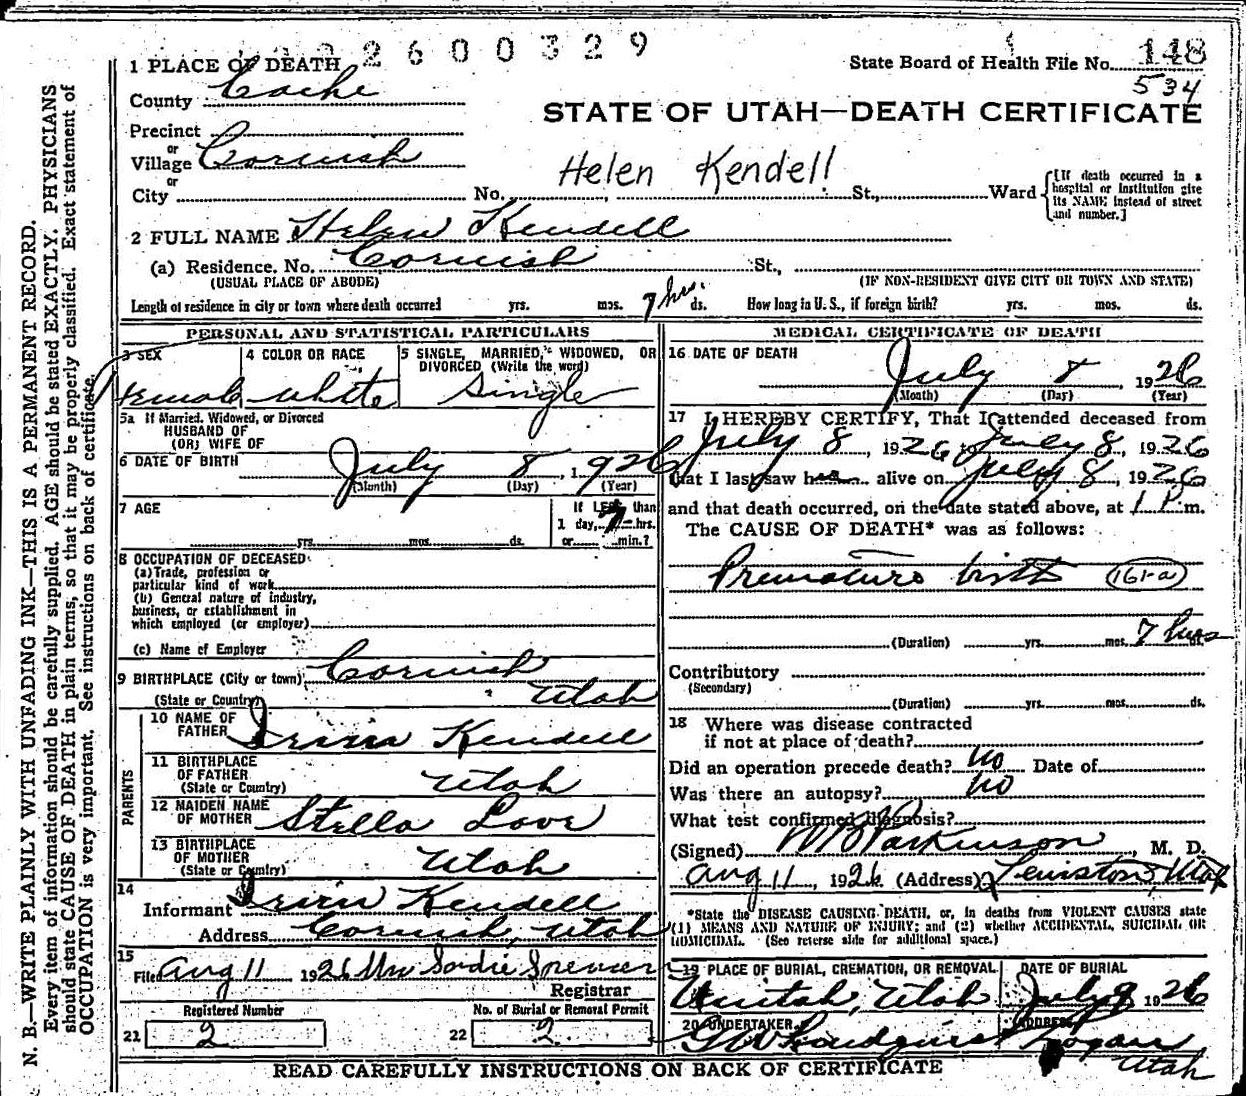 2600329
1 PLACE OF DEATH
State Board of Health File No. 148
534
County Cache
STATE OF UTAH—DEATH CERTIFICATE
Precinct
or
Village Cornish
or
City No. Helen Kendell St., Ward
[If death occurred in a
hospital or institution give
its NAME instead of street
and number.]
2 FULL NAME Helen Kendell
(a) Residence. No. Cornish St.,
(USUAL PLACE OF ABODE) (IF NON-RESIDENT GIVE CITY OR TOWN AND STATE)
Length of residence in city or town where death occurred yrs. mos. 7 hrs. ds. How long in U. S., if foreign birth? yrs. mos. ds.
PERSONAL AND STATISTICAL PARTICULARS
3 SEX
Female
4 COLOR OR RACE
White
5 SINGLE, MARRIED, WIDOWED, OR
DIVORCED (Write the word)
Single
5a If Married, Widowed, or Divorced
HUSBAND OF
(OR) WIFE OF
6 DATE OF BIRTH July 8, 1926
(Month) (Day) (Year)
7 AGE
yrs. mos. ds.
If LESS than
1 day, 7 hrs.
or min.?
8 OCCUPATION OF DECEASED
(a) Trade, profession or
particular kind of work
(b) General nature of industry,
business, or establishment in
which employed (or employer)
(c) Name of Employer
9 BIRTHPLACE (City or town) Cornish
(State or Country) Utah
PARENTS
10 NAME OF
FATHER Irvin Kendell
11 BIRTHPLACE
OF FATHER
(State or Country) Utah
12 MAIDEN NAME
OF MOTHER Stella Love
13 BIRTHPLACE
OF MOTHER
(State or Country) Utah
14
Informant Irvin Kendell
Address Cornish, Utah
15
Filed Aug 11 1926 Mrs Sadie Spencer
Registrar
Registered Number
21 2
No. of Burial or Removal Permit
22 2
MEDICAL CERTIFICATE OF DEATH
16 DATE OF DEATH
July 8, 1926
(Month) (Day) (Year)
17 I HEREBY CERTIFY, That I attended deceased from
July 8, 1926 to July 8, 1926
that I last saw h alive on July 8, 1926
and that death occurred, on the date stated above, at 1 P. m.
The CAUSE OF DEATH* was as follows:
Premature birth 161-a
(Duration) yrs. mos. 7 hrs ds.
Contributory
(Secondary)
(Duration) yrs. mos. ds.
18 Where was disease contracted
if not at place of death?
Did an operation precede death? no Date of
Was there an autopsy? no
What test confirmed diagnosis?
(Signed) W B Parkinson, M. D.
Aug 11, 1926 (Address) Lewiston, Utah
*State the DISEASE CAUSING DEATH, or, in deaths from VIOLENT CAUSES state
(1) MEANS AND NATURE OF INJURY; and (2) whether ACCIDENTAL, SUICIDAL OR
HOMICIDAL. (See reverse side for additional space.)
19 PLACE OF BURIAL, CREMATION, OR REMOVAL
Uintah, Utah
DATE OF BURIAL
July 9 1926
20 UNDERTAKER
G W Lindquist
ADDRESS
Logan
Utah
READ CAREFULLY INSTRUCTIONS ON BACK OF CERTIFICATE
N. B.—WRITE PLAINLY WITH UNFADING INK—THIS IS A PERMANENT RECORD.
Every item of information should be carefully supplied. AGE should be stated EXACTLY. PHYSICIANS
should state CAUSE OF DEATH in plain terms, so that it may be properly classified. Exact statement of
OCCUPATION is very important. See instructions on back of certificate.